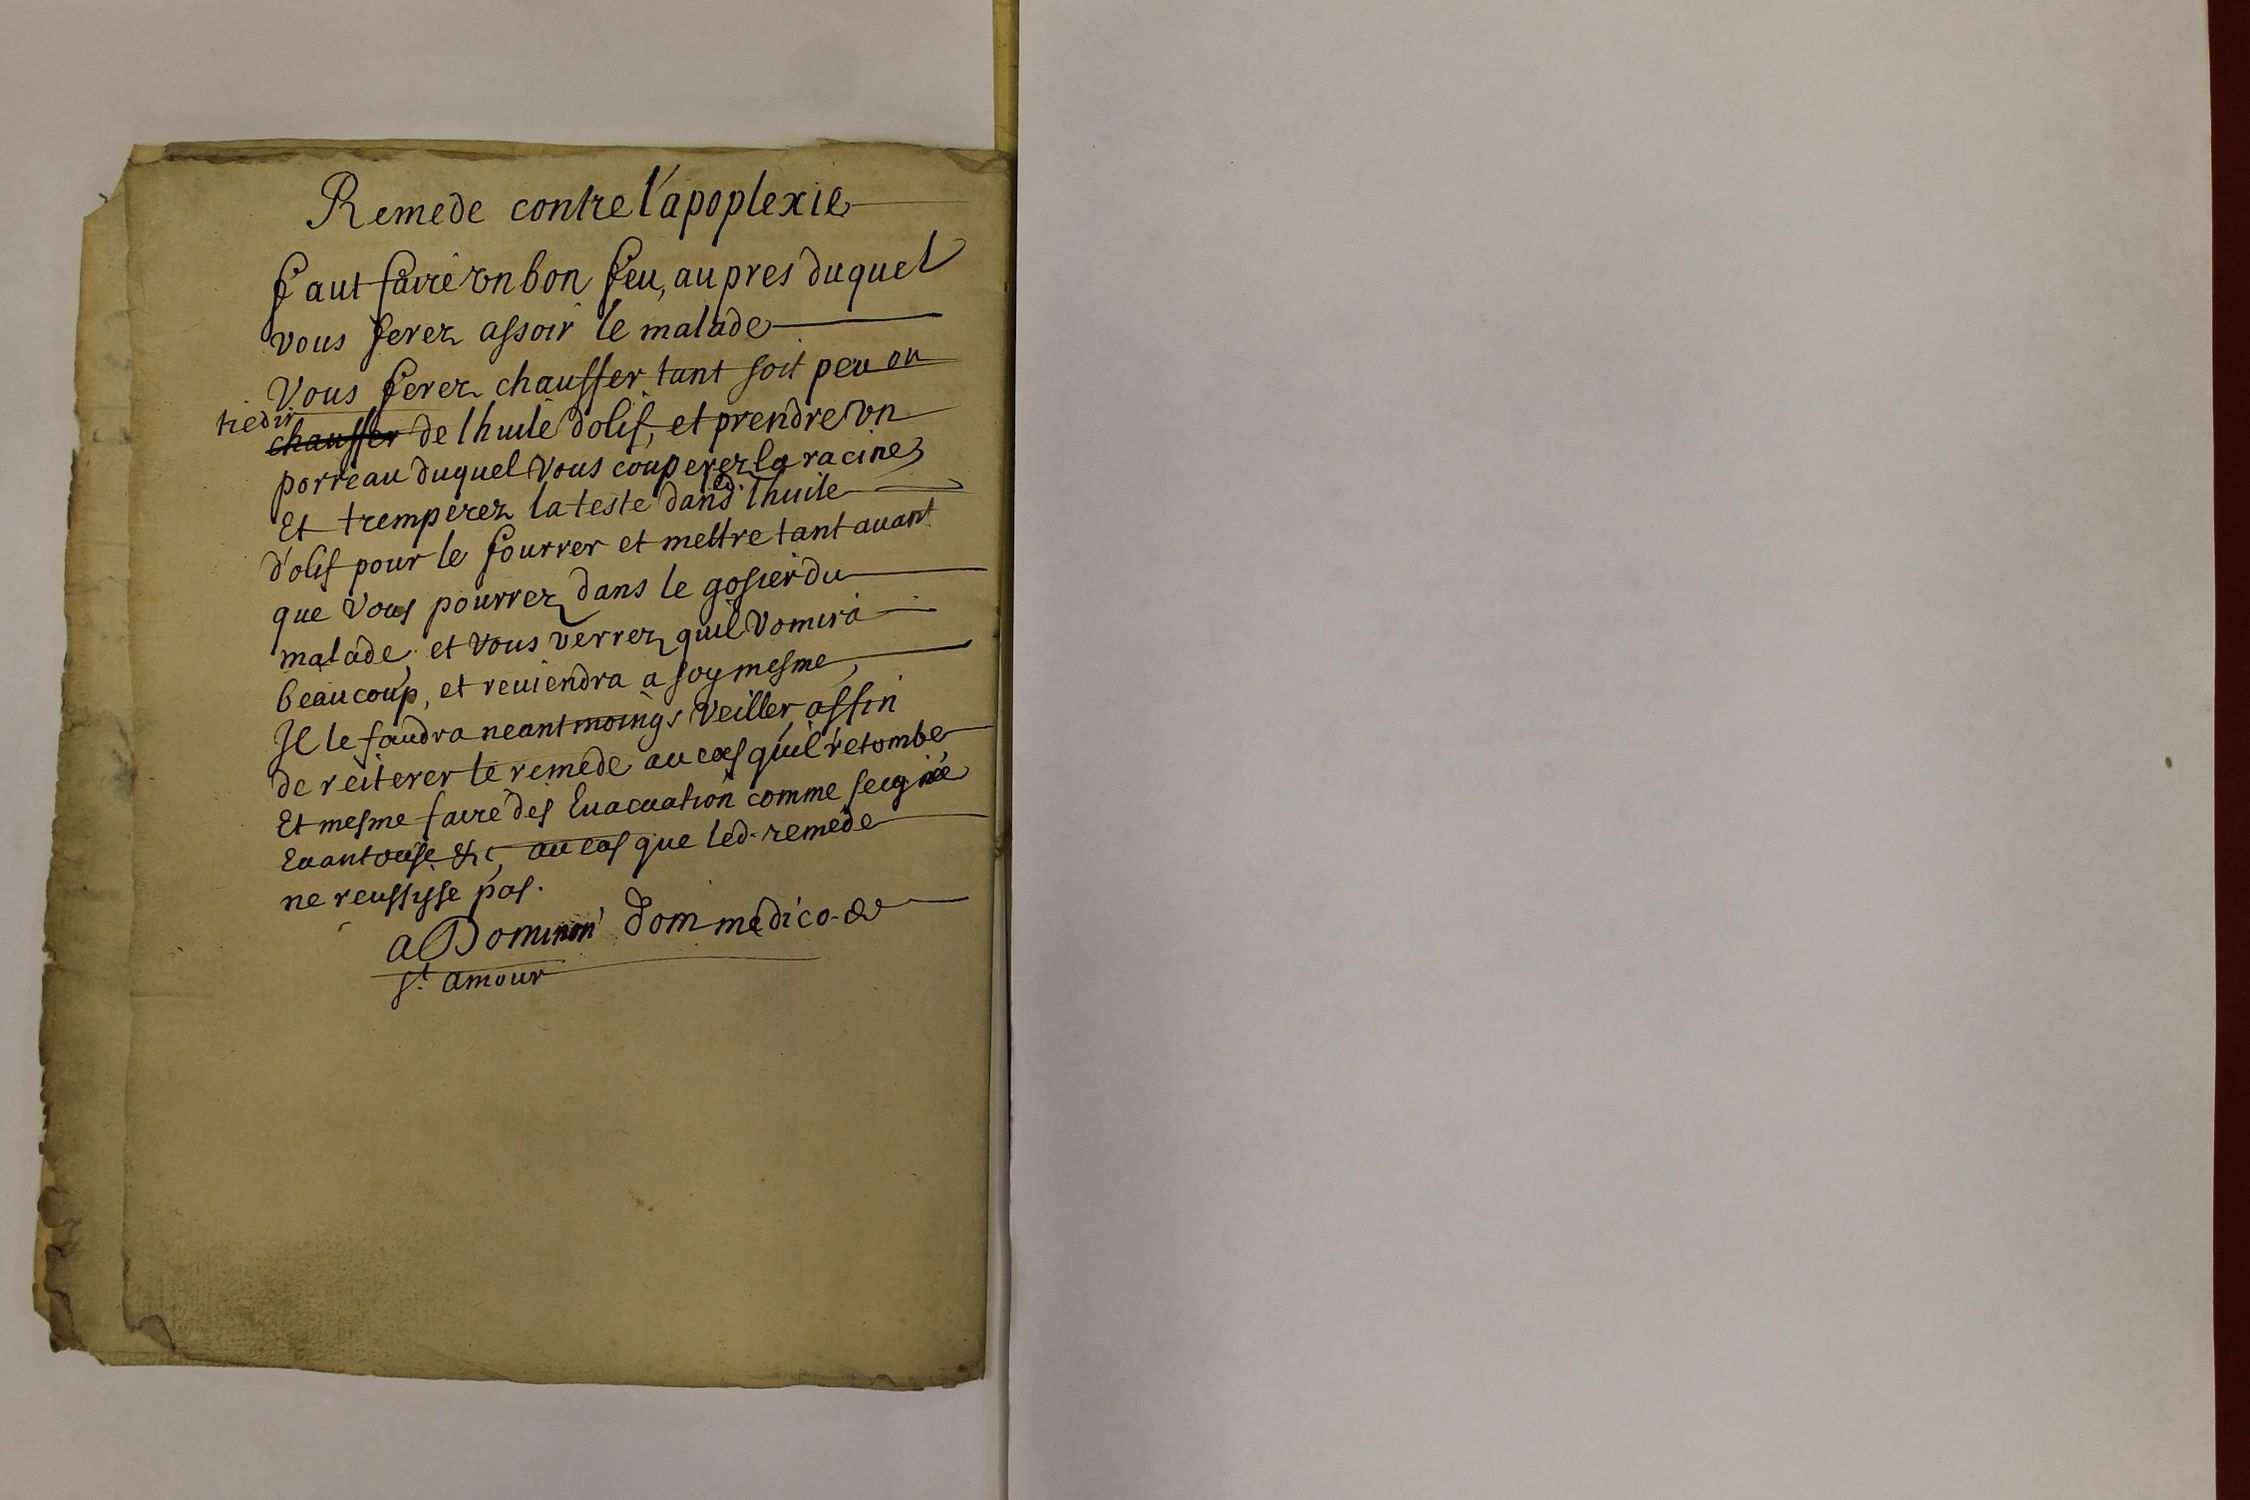 Remede contre l'apoplexie
faut faire vn bon feu, aupres duquel
vous ferez assoir le malade
Vous ferez chauffer tant soit peu ou
tiedir chauffer de lhuile dolif, et prendre vn
porreau duquel vous couperez la racine
Et tremperez la teste dans lhuile
d'olif pour le fourrer et mettre tant auant
que vous pourrez dans le gosier du
malade, et vous verrez quil vomira
beaucoup, et reuiendra a soy mesme,
Il le faudra neantmoings veiller affin
de reiterer le remede au cas quil retombe
Et mesme faire des Euacuation comme seignée
au cas que led. remede
ne reussysse pas.
a Dom medico
St amour